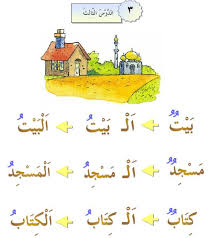 ٣ الدَّرْسُ الثَّالِثُ
بَيْتٌ الْـ بَيْتُ اَلْبَيْتُ
مَسْجِدٌ الْـ مَسْجِدُ اَلْمَسْجِدُ
كِتَابٌ الْـ كِتَابُ اَلْكِتَابُ